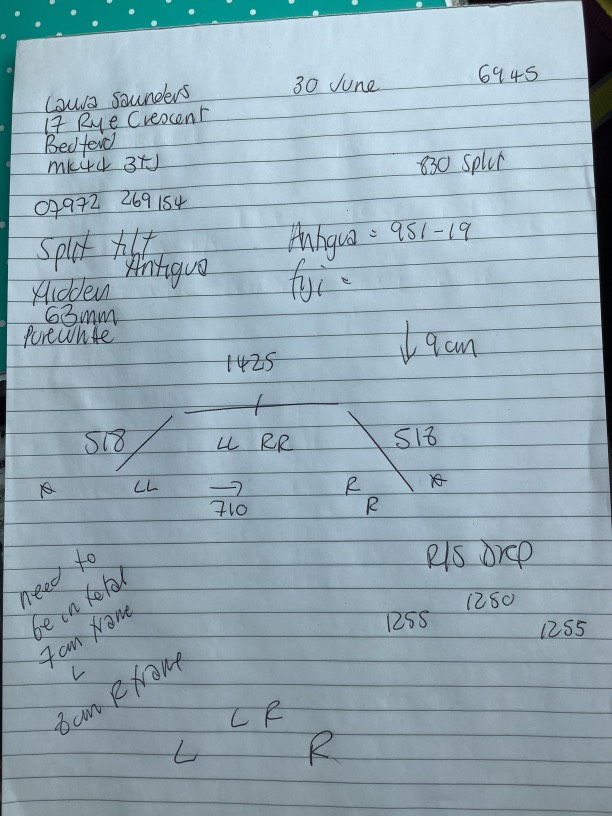 Laura Saunders 30 June 6945
17 Rye Crescent
Bedford
MK44 3TJ 830 Split
07972 269154
Split tilt Antigua = 951-19
Antigua
Hidden fyi =
63mm
Purewhite
↓ 9cm
1425
518 518
LL RR
* LL → R *
710 R
R/S Drop
need to
be in total 1250
7cm frame 1255 1255
L
8cm R frame
L R
L R